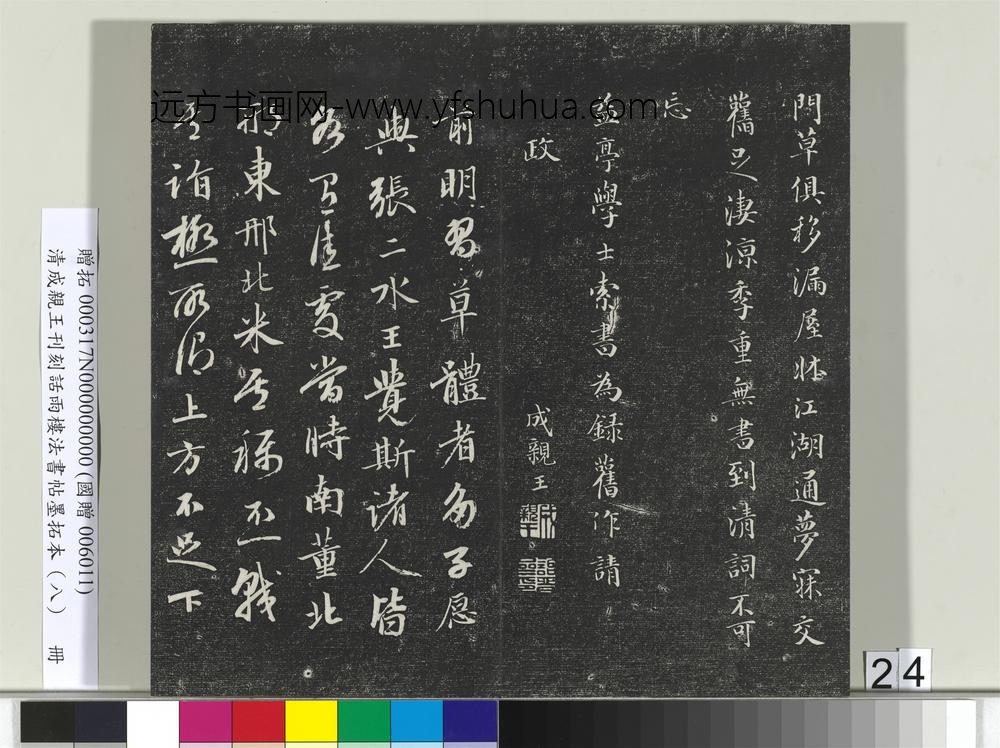 閂草俱移漏屋牀江湖通夢寐交
舊足淒涼季重無書到清詞不可
忘
益亭學士索書為錄舊作請
政
成親王
前明習草體者多子愿
與張二水王覺斯諸人皆
當時南董北
邢東邢北米互稱不
上方不足下
远方书画网-www.yfshuhua.com
贈拓 000317N000000000(國贈 006011)
清成親王刊刻話雨樓法書帖墨拓本(八) 冊
24